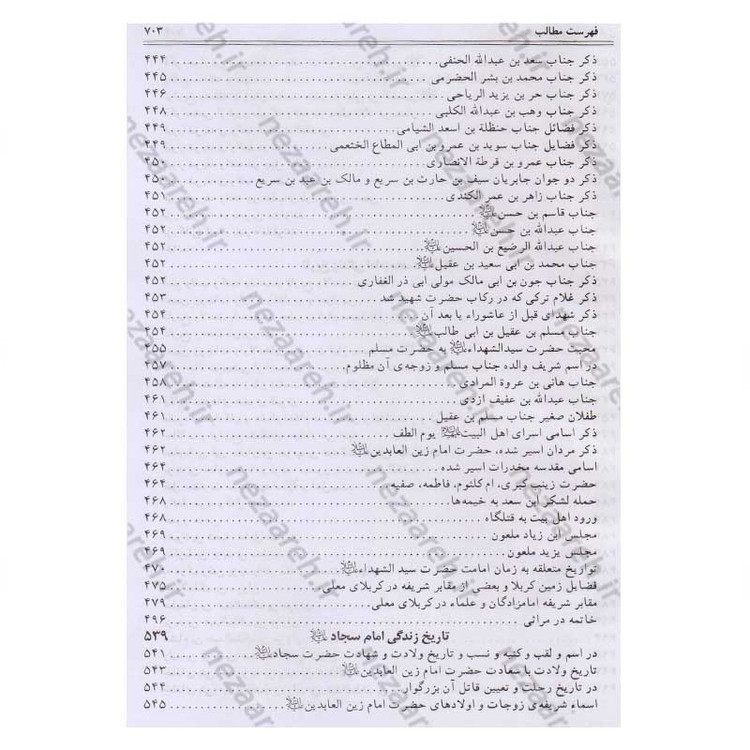 فهرست مطالب ۷۰۳
ذکر جناب سعد بن عبدالله الحنفی ۴۴۴
ذکر جناب محمد بن بشر الحضرمی ۴۴۵
ذکر جناب حر بن یزید الریاحی ۴۴۶
ذکر جناب وهب بن عبدالله الکلبی ۴۴۸
ذکر فضائل جناب حنظلة بن اسعد الشیامی ۴۴۹
ذکر فضایل جناب سوید بن عمرو بن ابی المطاع الختعمی ۴۴۹
ذکر جناب عمرو بن قرطة الانصاری ۴۵۰
ذکر دو جوان جابریان سیف بن حارث بن سریع و مالک بن عبد بن سریع ۴۵۰
ذکر جناب زاهر بن عمر الکندی ۴۵۱
جناب قاسم بن حسن ۴۵۲
جناب عبدالله بن حسن ۴۵۲
جناب عبدالله الرضیع بن الحسین ۴۵۲
جناب محمد بن ابی سعید بن عقیل ۴۵۲
ذکر جناب جون بن ابی مالک مولی ابی ذر الغفاری ۴۵۲
ذکر غلام ترکی که در رکاب حضرت شهید شد ۴۵۳
ذکر شهدای قبل از عاشوراء یا بعد آن ۴۵۴
جناب مسلم بن عقیل بن ابی طالب ۴۵۴
محبت حضرت سیدالشهداء به حضرت مسلم ۴۵۵
در اسم شریف والده جناب مسلم و زوجه‌ی آن مظلوم ۴۵۷
جناب هانی بن عروة المرادی ۴۵۸
جناب عبدالله بن عفیف ازدی ۴۶۱
طفلان صغیر جناب مسلم بن عقیل ۴۶۱
ذکر اسامی اسرای اهل البیت یوم الطف ۴۶۲
ذکر مردان اسیر شده، حضرت امام زین العابدین ۴۶۲
اسامی مقدسه مخدرات اسیر شده ۴۶۴
حضرت زینب کبری، ام کلثوم، فاطمه، صفیه ۴۶۴
حمله لشکر ابن سعد به خیمه‌ها ۴۶۸
ورود اهل بیت به قتلگاه ۴۶۸
مجلس ابن زیاد ملعون ۴۶۹
مجلس یزید ملعون ۴۶۹
تواریخ متعلقه به زمان امامت حضرت سید الشهداء ۴۷۰
فضایل زمین کربلا و بعضی از مقابر شریفه در کربلای معلی ۴۷۵
مقابر شریفه امامزادگان و علماء در کربلای معلی ۴۷۹
خاتمه در مراثی ۴۹۶
تاریخ زندگی امام سجاد ۵۳۹
در اسم و لقب و کنیه و نسب و تاریخ ولادت و شهادت حضرت سجاد ۵۴۱
تاریخ ولادت با سعادت حضرت امام زین العابدین ۵۴۳
در تاریخ رحلت و تعیین قاتل آن بزرگوار ۵۴۴
اسماء شریفه‌ی زوجات و اولادهای حضرت امام زین العابدین ۵۴۵
nezaareh.ir